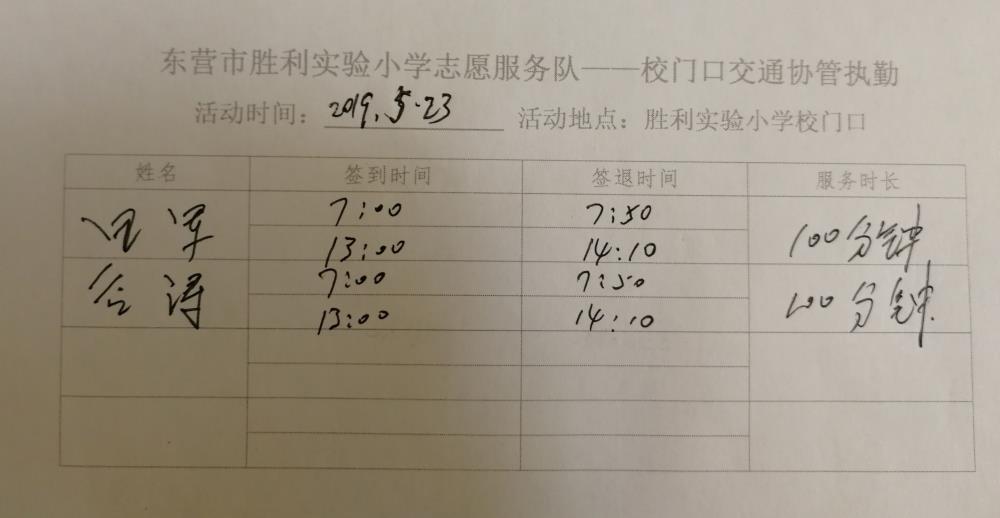 东营市胜利实验小学志愿服务队——校门口交通协管执勤
活动时间：2019.5.23 活动地点：胜利实验小学校门口
姓名 签到时间 签退时间 服务时长
7:00 7:50
田军 100分钟
13:00 14:10
7:00 7:50
谷涛 100分钟
13:00 14:10